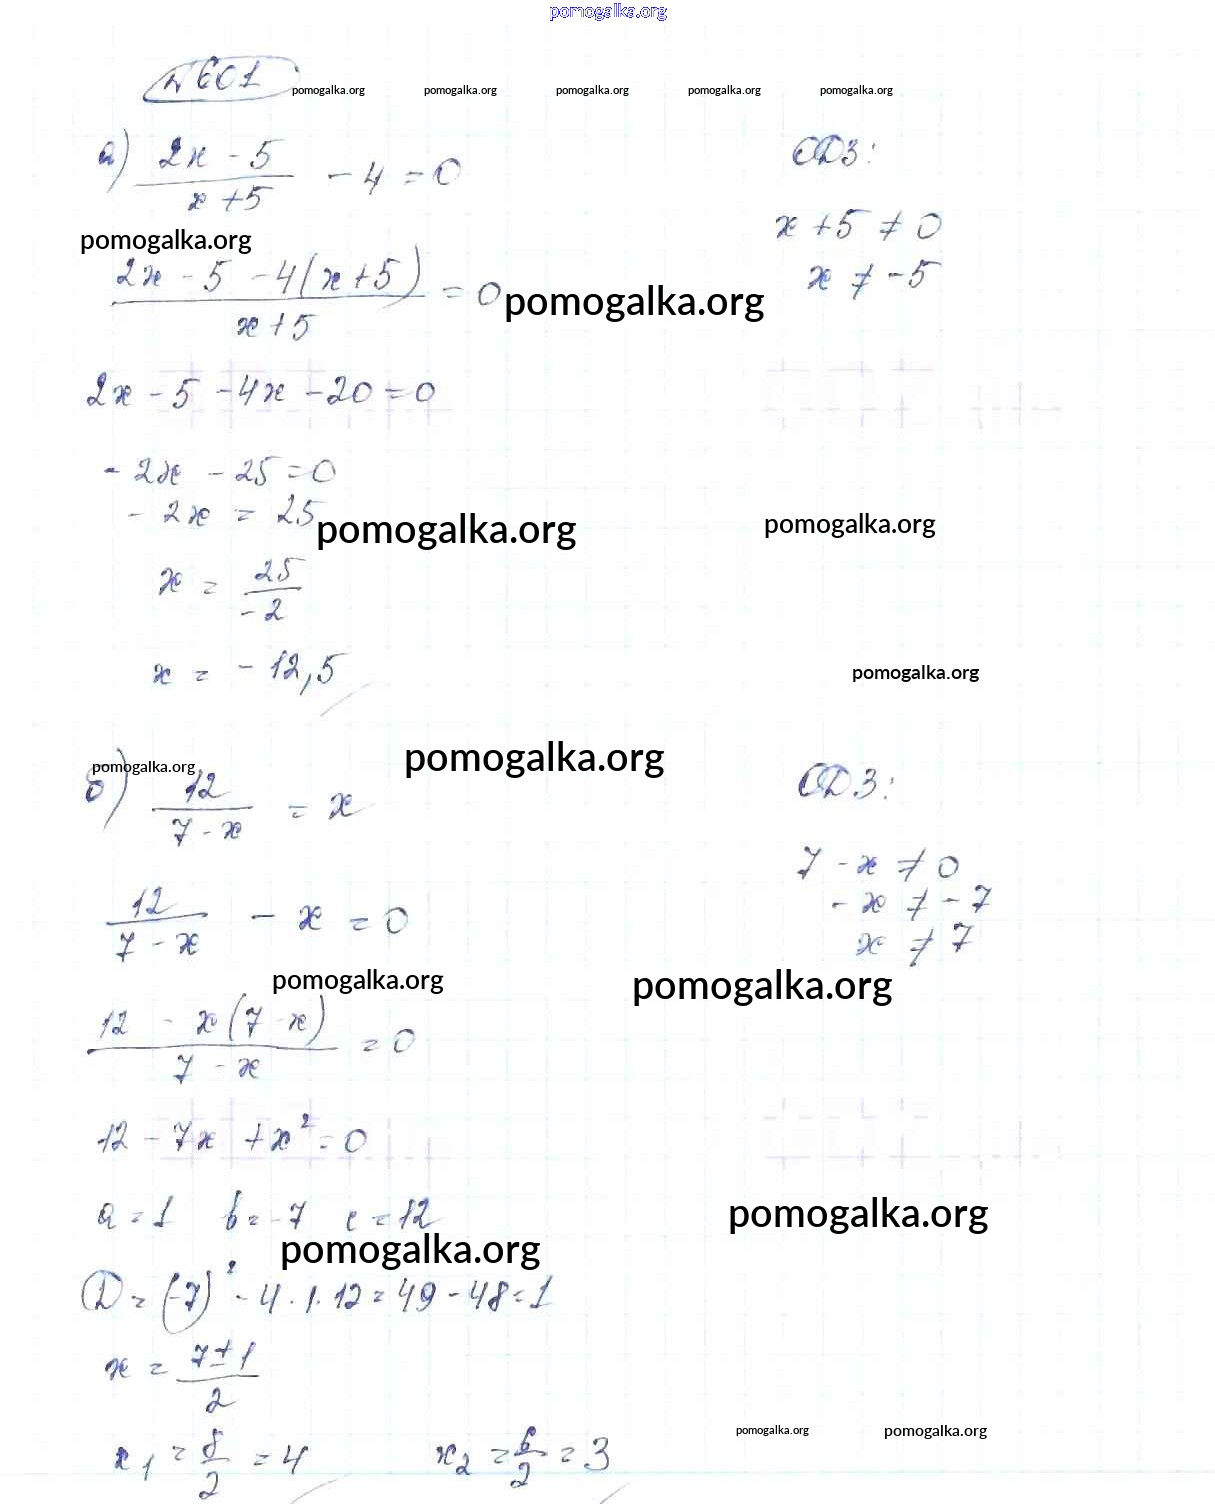 pomogalka.org
№ 601
pomogalka.org pomogalka.org pomogalka.org pomogalka.org pomogalka.org
а) (2x - 5)/(x + 5) - 4 = 0
ОДЗ:
x + 5 ≠ 0
x ≠ -5
pomogalka.org
(2x - 5 - 4(x + 5))/(x + 5) = 0
pomogalka.org
2x - 5 - 4x - 20 = 0
- 2x - 25 = 0
- 2x = 25
pomogalka.org pomogalka.org
x = 25/-2
x = - 12,5
pomogalka.org
pomogalka.org
pomogalka.org
б) 12/(7 - x) = x
ОДЗ:
7 - x ≠ 0
- x ≠ - 7
x ≠ 7
12/(7 - x) - x = 0
pomogalka.org pomogalka.org
(12 - x(7 - x))/(7 - x) = 0
12 - 7x + x² = 0
a = 1 b = -7 c = 12
pomogalka.org
pomogalka.org
D = (-7)² - 4 · 1 · 12 = 49 - 48 = 1
x = (7 ± 1)/2
pomogalka.org pomogalka.org
x₁ = 8/2 = 4 x₂ = 6/2 = 3